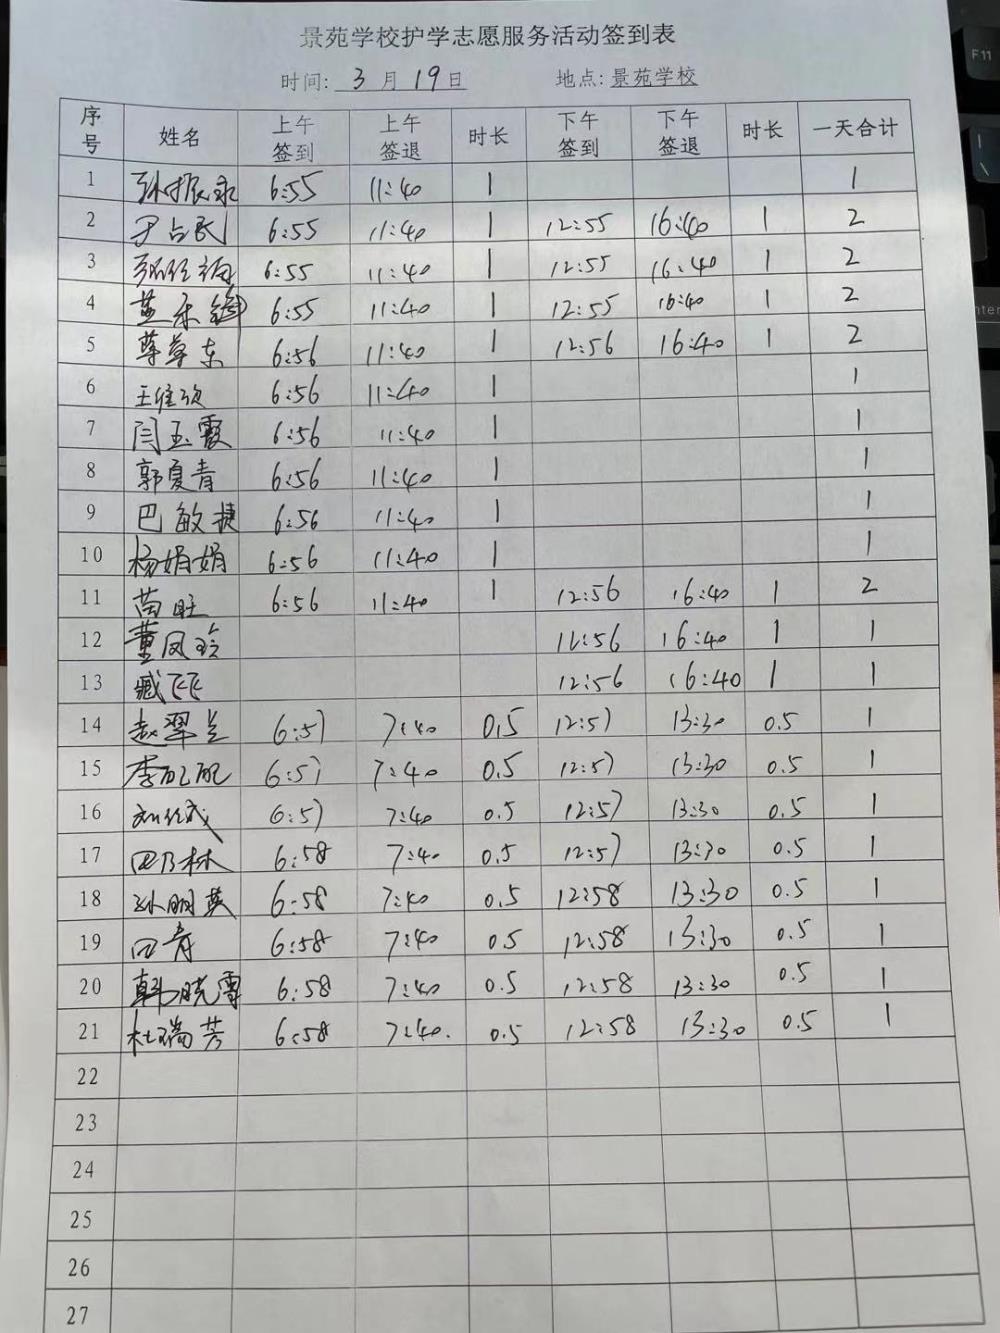 景苑学校护学志愿服务活动签到表
时间: 3月19日 地点: 景苑学校
序号 姓名 上午签到 上午签退 时长 下午签到 下午签退 时长 一天合计
1 孙振录 6:55 11:40 1 1
2 尹占民 6:55 11:40 1 12:55 16:40 1 2
3 6:55 11:40 1 12:55 16:40 1 2
4 6:55 11:40 1 12:55 16:40 1 2
5 6:56 11:40 1 12:56 16:40 1 2
6 王维欣 6:56 11:40 1 1
7 闫玉霞 6:56 11:40 1 1
8 郭夏青 6:56 11:40 1 1
9 巴敏捷 6:56 11:40 1 1
10 杨娟娟 6:56 11:40 1 1
11 苗旺 6:56 11:40 1 12:56 16:40 1 2
12 董凤玲 12:56 16:40 1 1
13 臧飞飞 12:56 16:40 1 1
14 赵翠兰 6:57 7:40 0.5 12:57 13:30 0.5 1
15 6:57 7:40 0.5 12:57 13:30 0.5 1
16 6:57 7:40 0.5 12:57 13:30 0.5 1
17 田乃林 6:58 7:40 0.5 12:57 13:30 0.5 1
18 孙明英 6:58 7:40 0.5 12:58 13:30 0.5 1
19 田青 6:58 7:40 0.5 12:58 13:30 0.5 1
20 韩晓雪 6:58 7:40 0.5 12:58 13:30 0.5 1
21 杜瑞芳 6:58 7:40. 0.5 12:58 13:30 0.5 1
22
23
24
25
26
27
F11